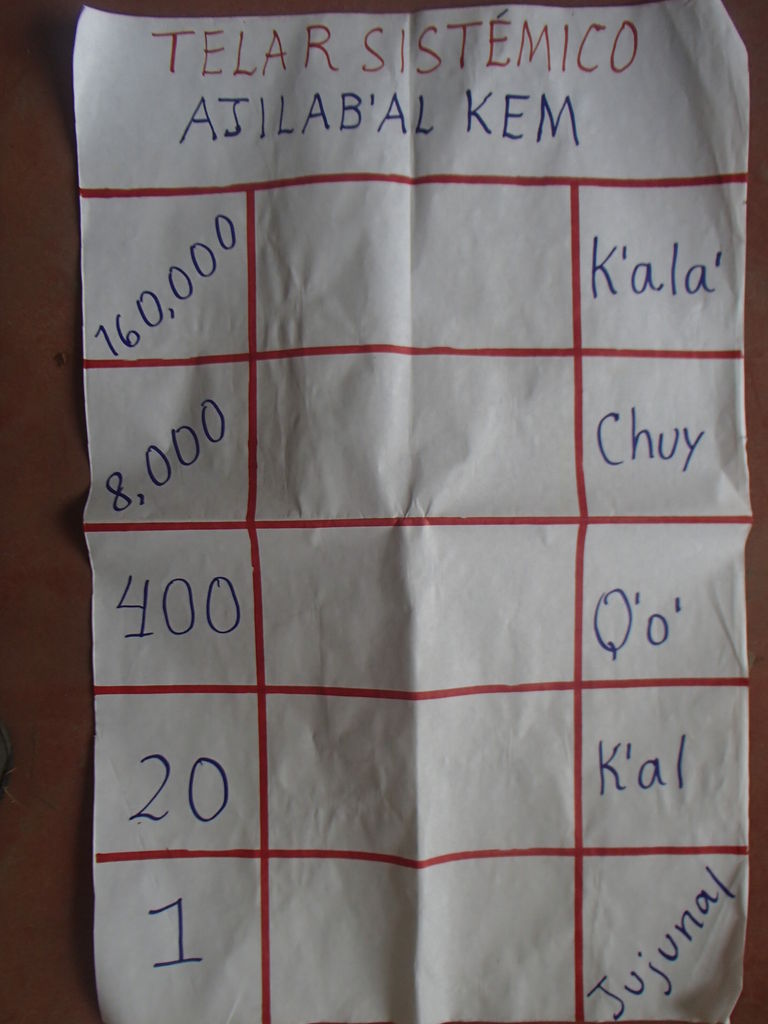 TELAR SISTÉMICO
AJILAB'AL KEM
160,000 K'ala'
8,000 Chuy
400 Q'o'
20 K'al
1 Jujunal